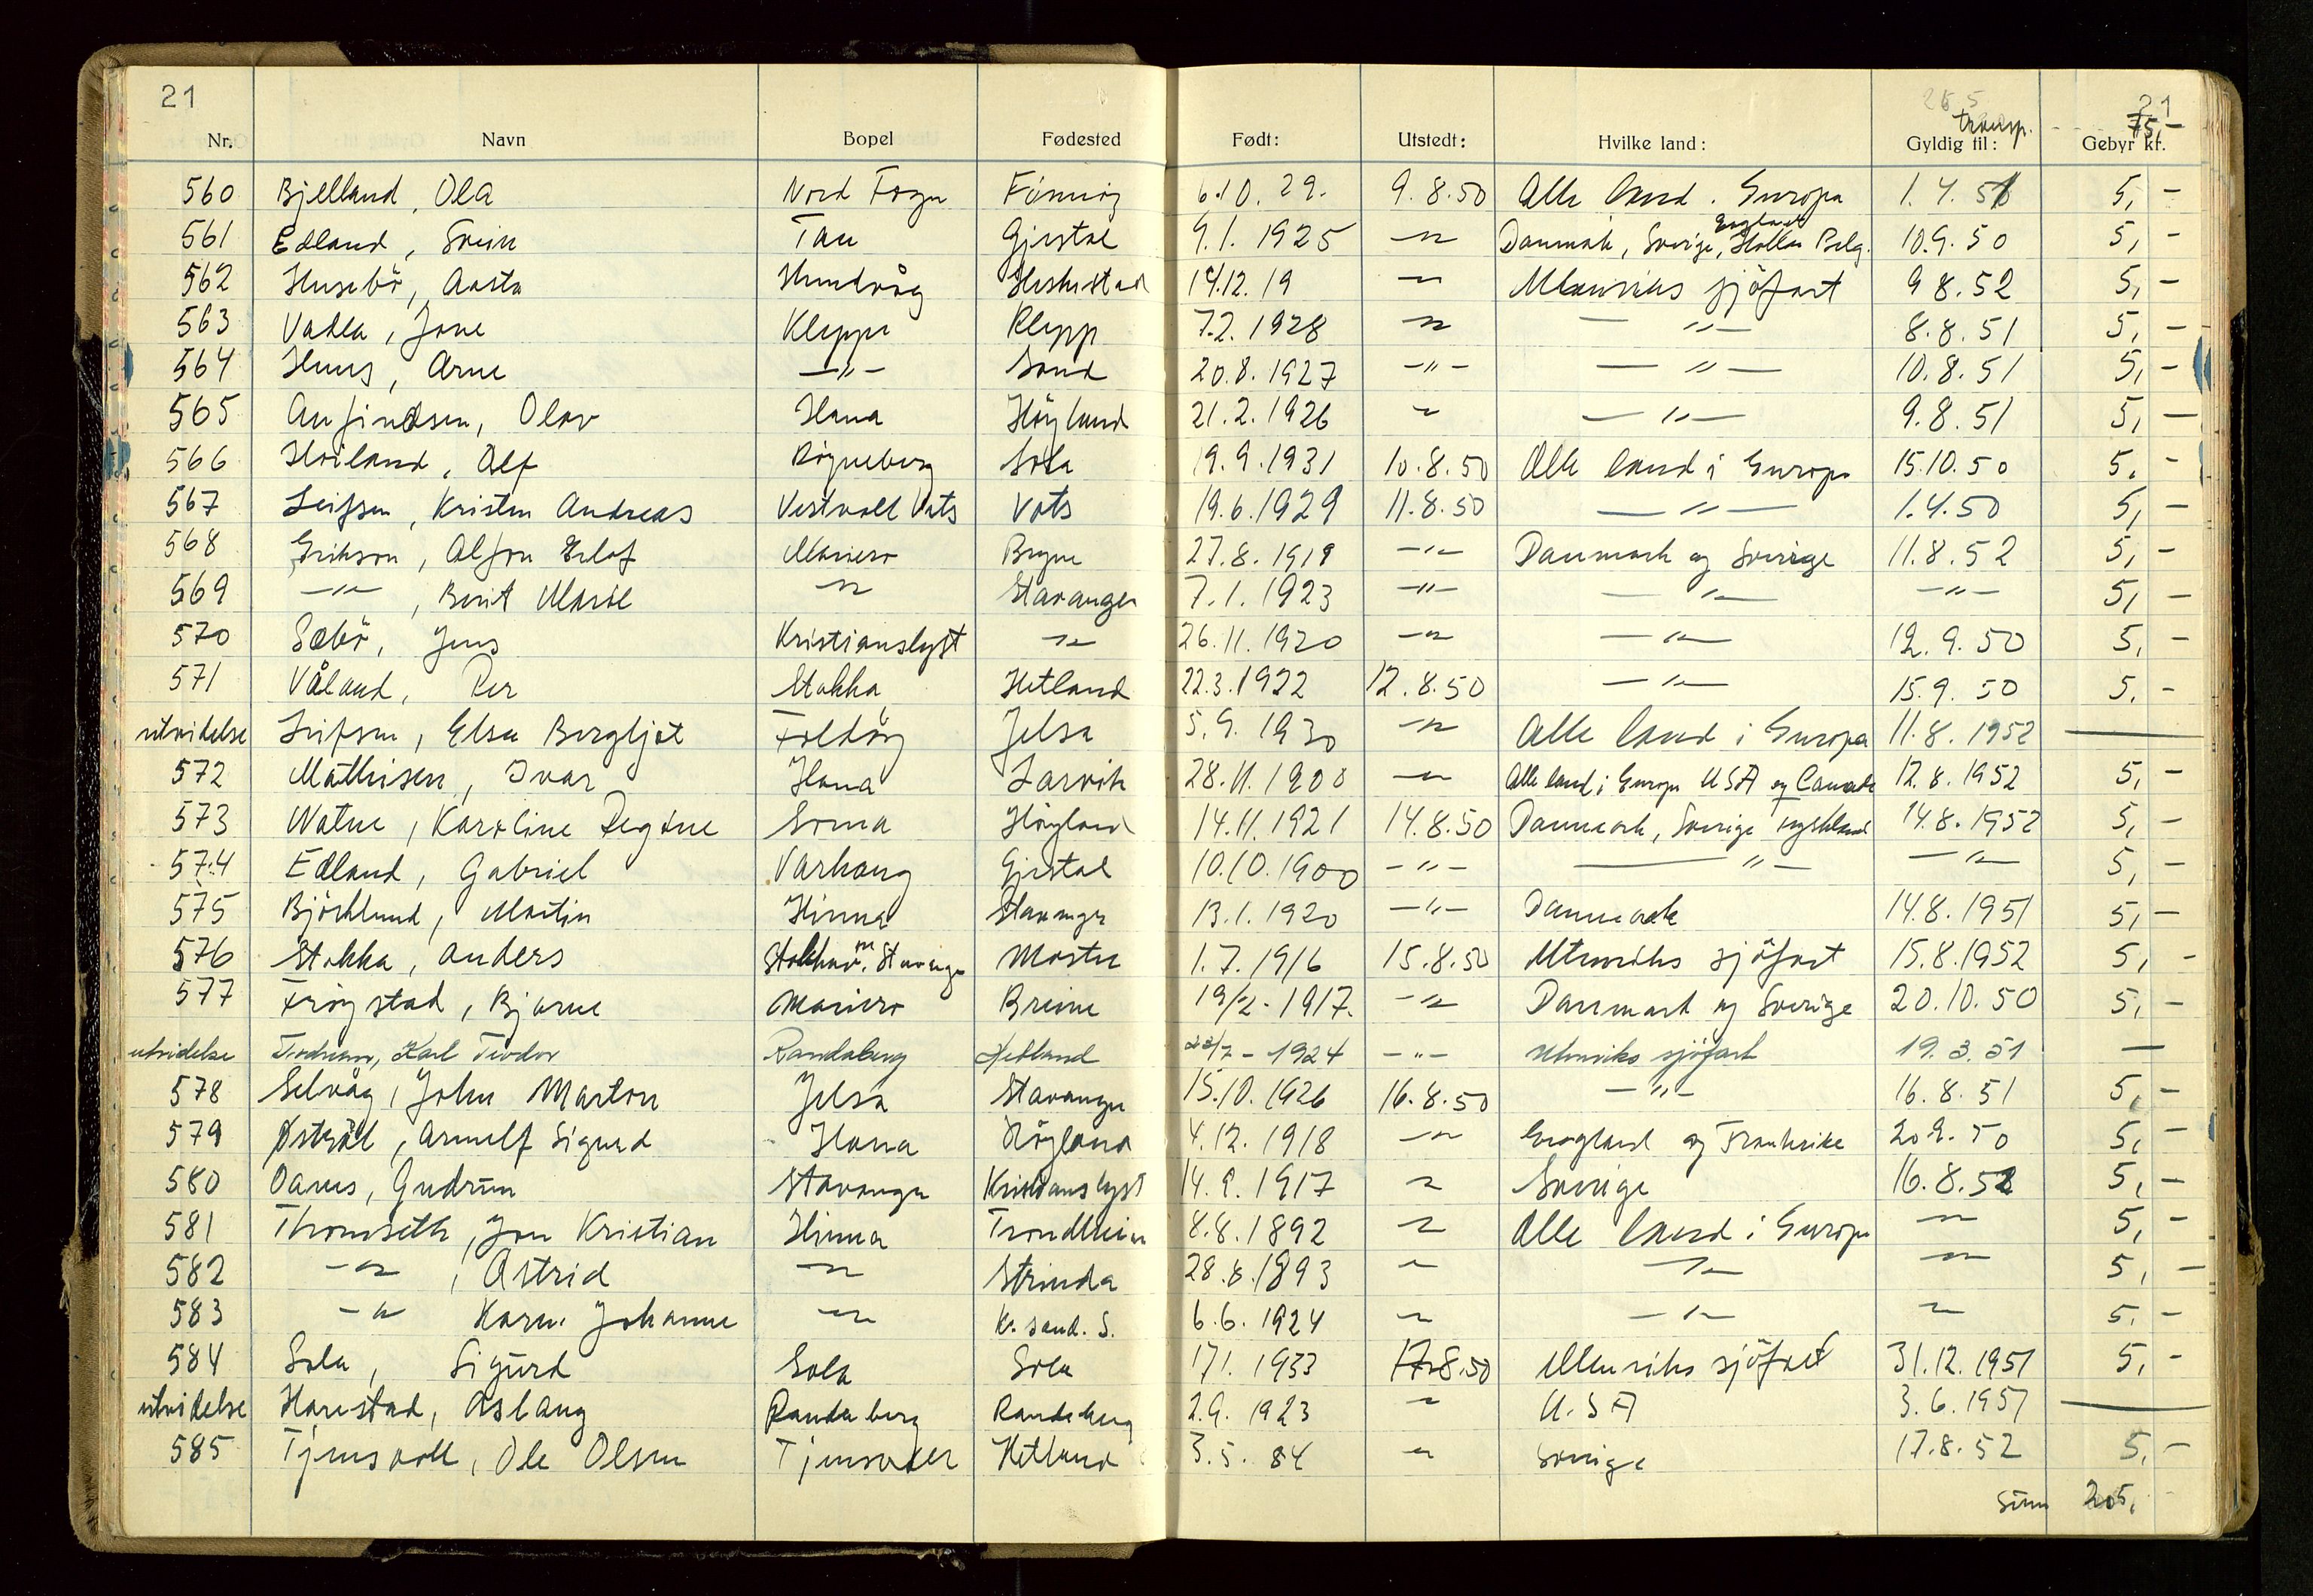 21
21
transp. 75,-
Nr. Navn Bopel Fødested Født: Utstedt: Hvilke land: Gyldig til: Gebyr kr.
560 Bjelland, Ola Nord Fogn Finnøy 6.10.29. 9.8.50 Alle land. Europa 1.4.51 5,-
England
561 Edland, Svein Tau Gjestal 9.1.1925 -"- Danmark, Sverige, Hollan Belg. 10.9.50 5,-
562 Husebö, Aasta Hundvåg Heskestad 14.12.19 -"- Utenriks sjöfart 9 8.52 5,-
563 Vadla, Jone Kleppe Klepp 7.2.1928 -"- -"- 8.8.51 5,-
564 Huus, Arne -"- Sand 20.8.1927 -"- -"- 10.8.51 5,-
565 Anfindsen, Olav Hana Höyland 21.2.1926 -"- -"- 9.8.51 5,-
566 Hoiland, Alf Röyneberg Sola 19.9.1931 10.8.50 Alle land i Europa 15.10.50 5,-
567 Leifsen, Kristen Andreas Vestvoll Vats Vats 19.6.1929 11.8.50 -"- 1.4.50 5,-
568 Erikson, Alfon Elof Mariero Bryne 27.8.1919 -"- Danmark og Sverige 11.8.52 5,-
569 -"-, Berit Marie -"- Stavanger 7.1.1923 -"- -"- -"- 5,-
570 Sæbö, Jens Kristianslyst -"- 26.11.1920 -"- -"- 12.9.50 5,
571 Våland, Per Stokka Hetland 22.3.1922 12.8.50 -"- 15.9.50 5,-
utvidelse Leifsen, Elsa Bergljot Foldöy Jelsa 5.9.1930 -"- Alle land i Europa 11.8.1952 —
572 Mathisen, Ivar Hana Larvik 28.11.1900 -"- Alle land i Europa USA og Canada 12.8.1952 5,-
573 Watne, Karoline Regine Soma Höyland 14.11.1921 14.8.50 Danmark, Sverige Tyskland 14.8.1952 5,-
574 Edland, Gabriel Varhaug Gjestal 10.10.1900 -"- -"- -"- 5,-
575 Björklund, Martin Hinna Stavanger 13.1.1920 -"- Danmark 14.8.1951 5,-
576 Stokka, Anders Stokkav. Stavanger Moster 1.7.1916 15.8.50 Utenriks sjöfart 15.8.1952 5,-
577 Fröystad, Bjarne Mariero Breime 19/2-1917. -"- Danmark og Sverige 20.10.50 5,-
utvidelse Karl Teodor Randaberg Hetland 22/7-1924 -"- Utenriks sjöfart 19.3.51 —
578 Selvåg, John Marton Jelsa Stavanger 15.10.1926 16.8.50 -"- 16.8.51 5,-
579 Østråt, Arnulf Sigurd Hana Höyland 4.12.1918 -"- England og Frankrike 20 9.50 5,-
580 Oaus, Gudrun Stavanger Kristianslyst 14.9.1917 -"- Sverige 16.8.52 5,-
581 Thomseth, Jon Kristian Hinna Trondheim 8.8.1892 -"- Alle land i Europa -"- 5,-
582 -"-, Astrid -"- Strinda 28.8.1893 -"- -"- -"- 5,-
583 -"- Karen Johanne -"- Kr. sand. S. 6.6.1924 -"- -"- -"- 5,-
584 Sola, Sigurd Sola Sola 17.1.1933 17.8.50 Utenriks sjöfart 31.12.1951 5,-
utvidelse Harestad, Aslaug Randaberg Randaberg 2.9.1923 -"- U.S.A 3.6.1951 —
585 Tjensvoll, Ole Olsen Tjensvoll Hetland 3.5.84 -"- Sverige 17.8.52 5,-
Sum 205,